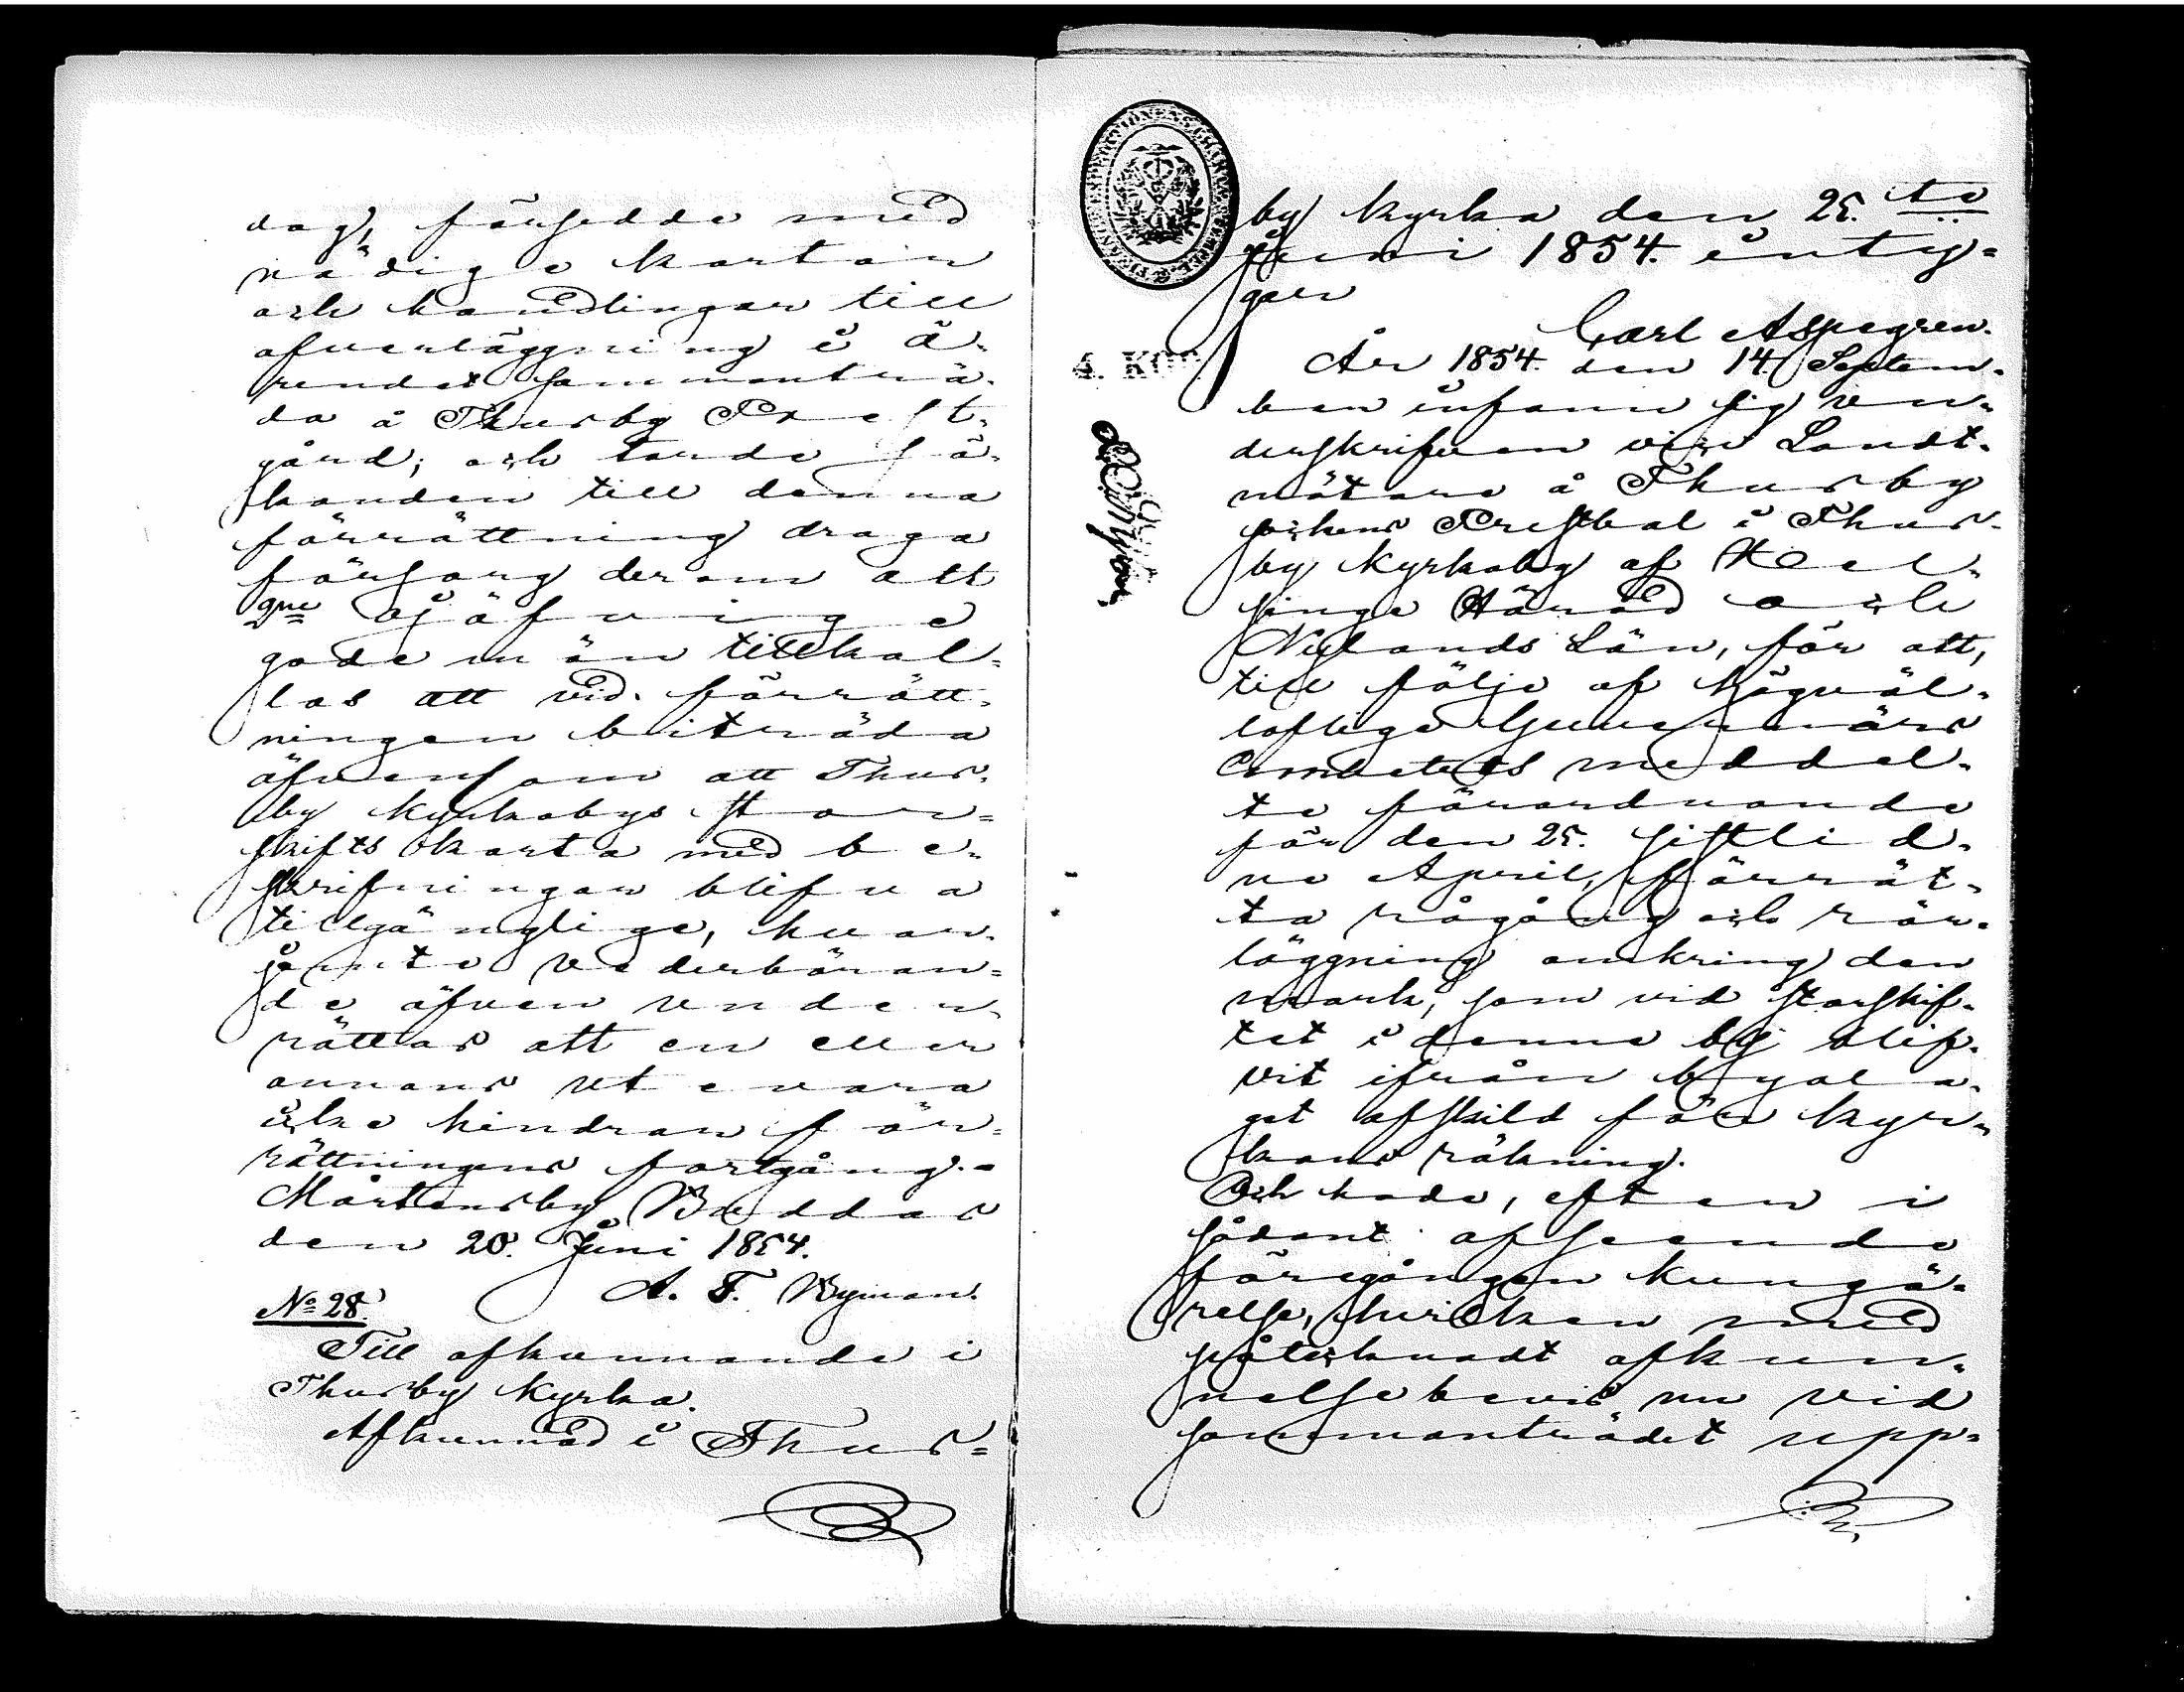 dag, försedde med
nödige kartor
och handlingar till
öfverläggning i ä-
rendet sammanträ-
da å Thusby Prest-
gård; och torde sö-
kanden till denna
förrättning draga
försorg derom att
2ne ojäfvige
gode män tillkal-
las att vid förrätt-
ningen biträda
äfvensom att Thus-
by Kyrkobys stor-
skifts karta med be-
skrifningar blifva
tillgänglige, hvar-
jemte vederböran-
de äfven under-
rättas att en eller
annans utevara
icke hindrar för-
rättningens fortgång.-
Mårtensby Boddas
den 20. Juni 1854.
A. F. Nyman.
No 28.
Till afkunnande i
Thusby Kyrka.
Afkunnad i Thus=
by kyrka den 25.te
Juni 1854. inty=
gar
Carl Aspegren.
4. KOP.
År 1854. den 14 Septem-
ber infann sig un-
derskrifven vice Landt-
mätare å Thusby
sockens Prestbol i Thus-
by Kyrkoby af Hel-
singe Härad och
Nylands Län, för att,
till följe af högväl-
loflige Guvernörs
Embetets meddel-
te förordnande
för den 25. sistlid-
ne April, förrät-
ta rågång och rör-
läggning omkring den
mark, som vid storskif-
tet i denne by blif-
vit ifrån byala-
get afskild för kyr-
kans räkning.
Och hade, efter i
sådant afseende
föregången kungö-
relse, hvilken med
påtecknadt afkun-
nelsebevis nu vid
sammanträdet upp=